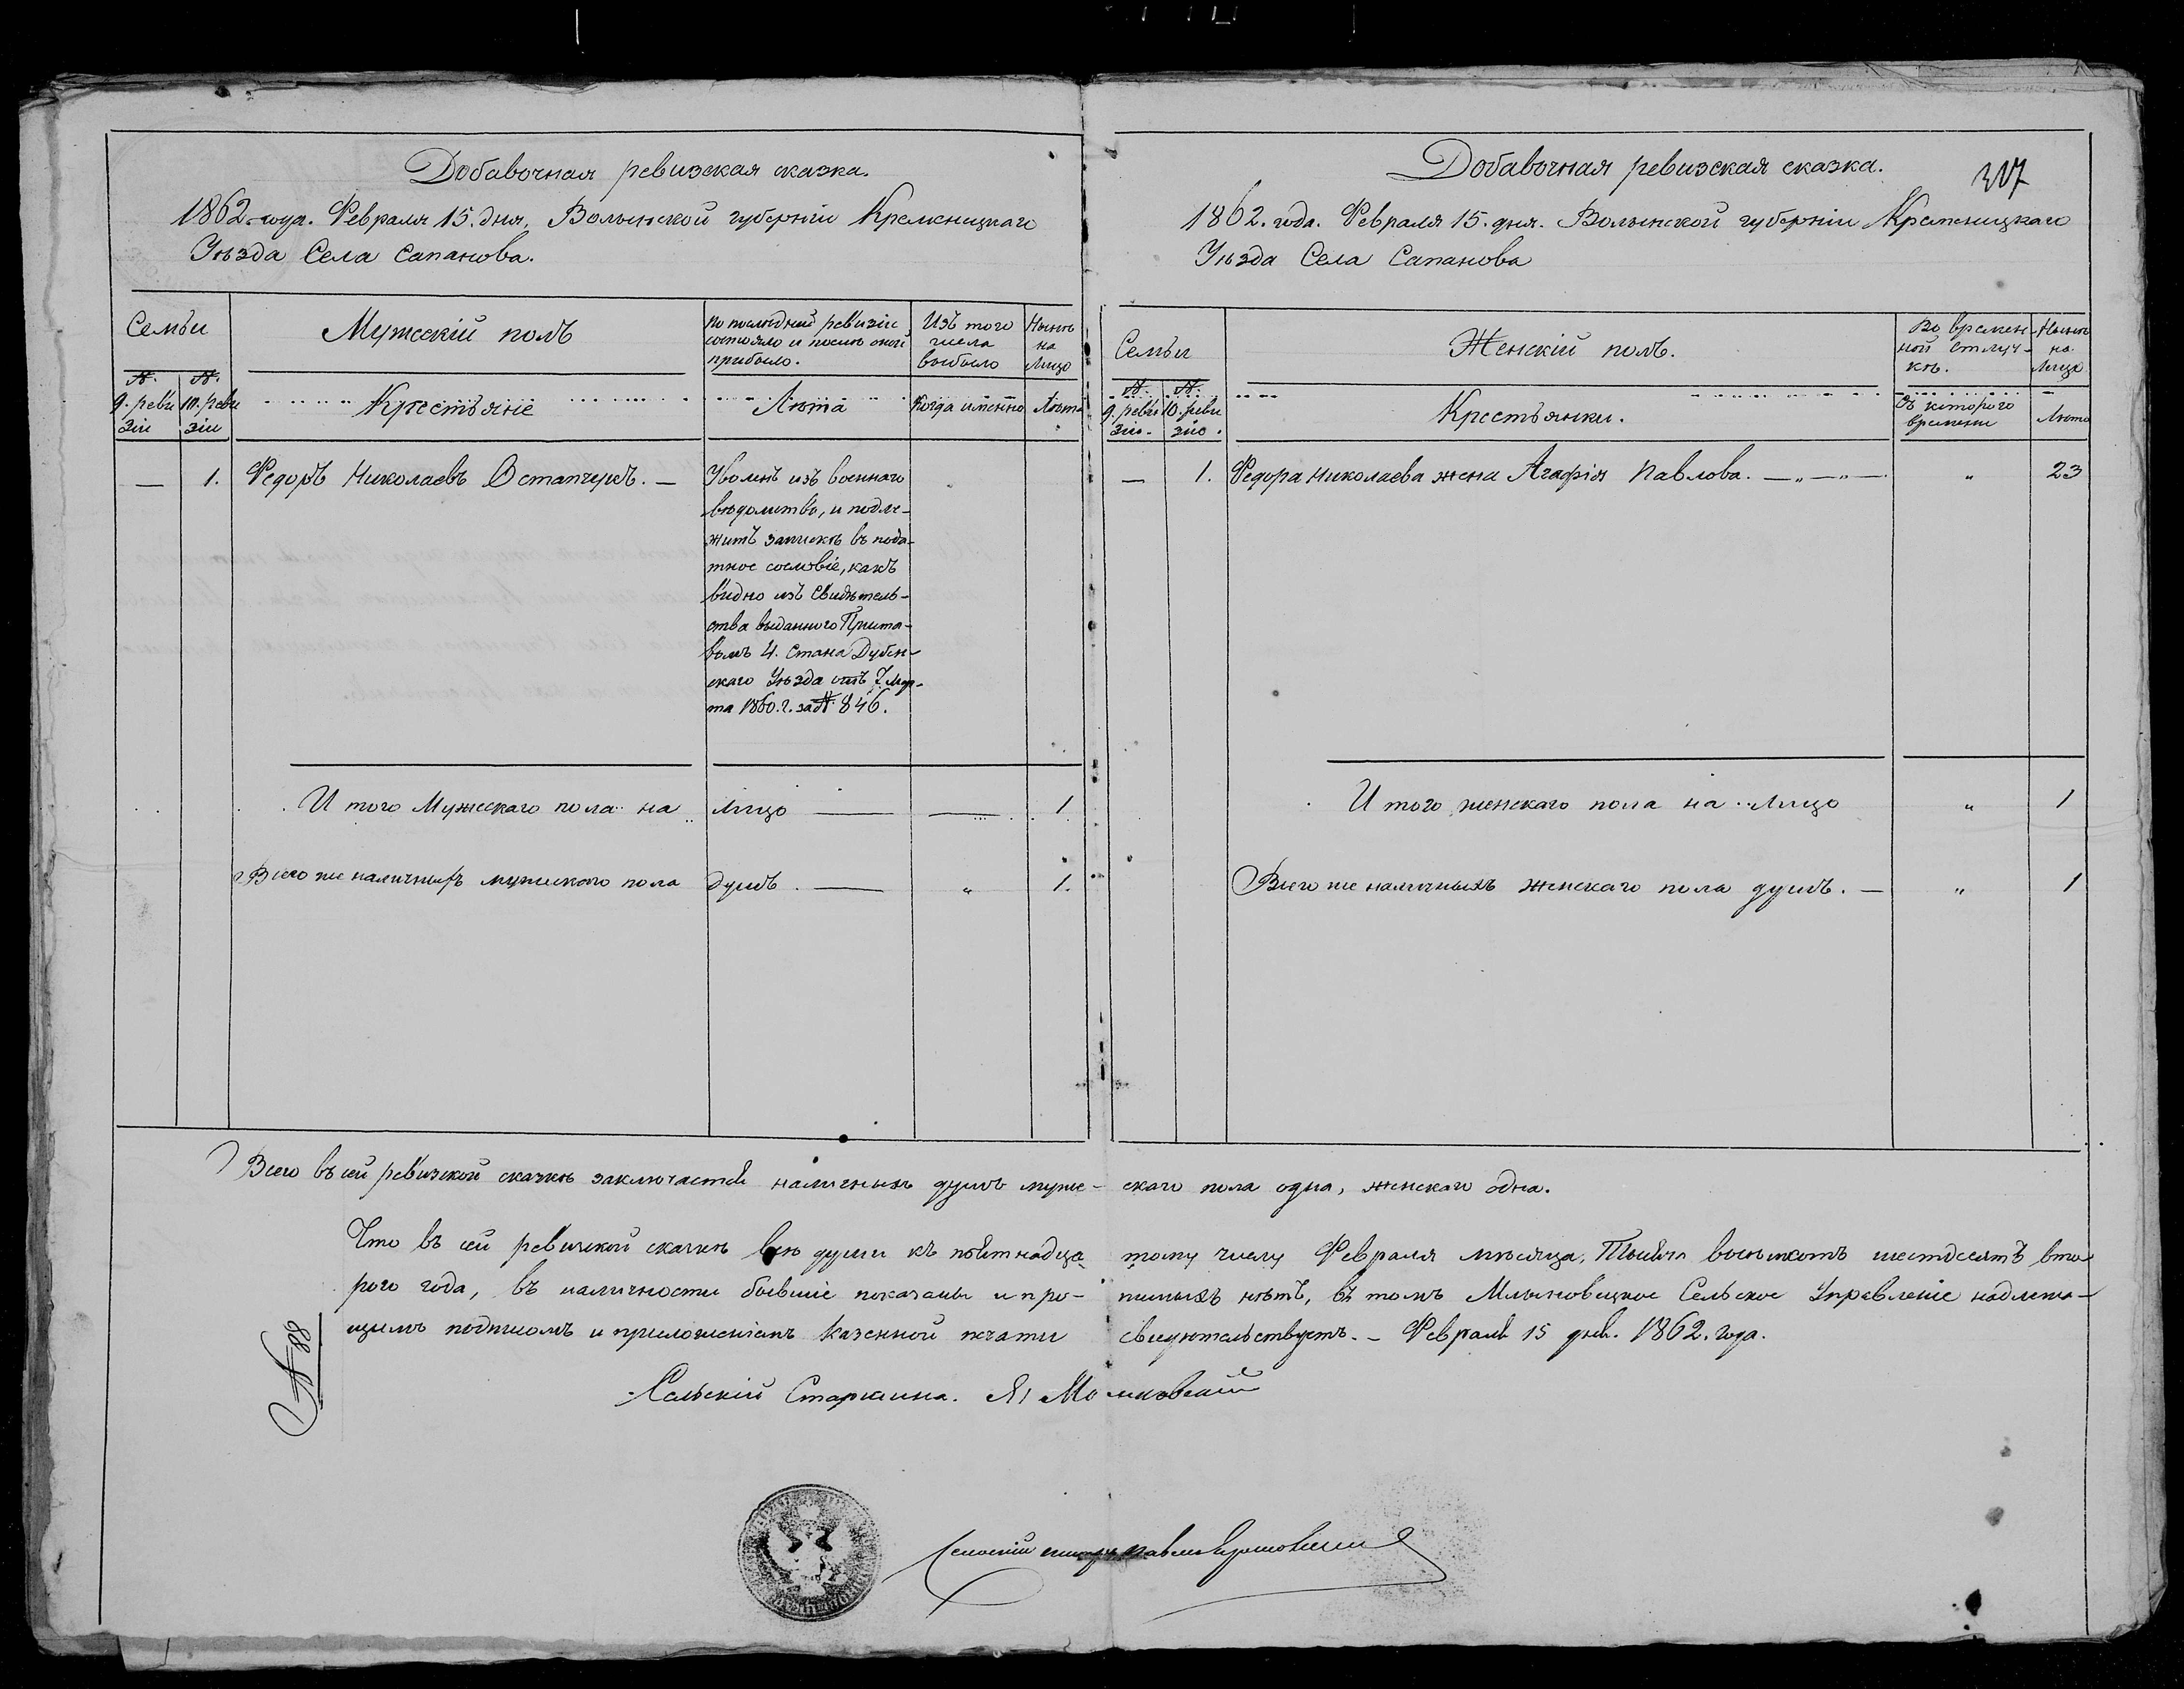 Добавочная ревизская сказка.
1862. года. Февраля 15. дня. Волынской губерніи Кременецкаго
Уѣзда Села Сапанова.
Семьи
Мужескій полъ
По послѣдней ревизіи состояло и послѣ оной прибыло.
Изъ того числа выбыло
Нынѣ на Лицо
№. 9. ревизіи
№. 10. ревизіи
Крестьяне
Лѣта
Когда именно
Лѣта
— 1. Федоръ Николаевъ Остапчукъ. —
Уволенъ изъ военнаго
вѣдомства, и подле-
житъ запискѣ въ пода-
тное сословіе, какъ
видно изъ Свидѣтель-
ства выданнаго Приста-
вомъ 4. Стана Дубен-
скаго Уѣзда отъ 7 Мар-
та 1860. г. за № 846.
И того Мужескаго пола на Лицо — — 1
Всего же наличныхъ мужескаго пола душъ. — " 1.
Добавочная ревизская сказка.
317
1862. года. Февраля 15. дня. Волынской губерніи Кременицкаго
Уѣзда Села Сапанова
Семьи
Женскій полъ.
Во времен-
ной отлуч-
кѣ.
Нынѣ
на
Лицо
№. 9. ревизіи.
№. 10. ревизію.
Крестьянки.
Съ котораго
времени
Лѣта
— 1. Федора Николаева жена Агафія Павлова. — " — " — " 23
И того женскаго пола на Лицо " 1
Всего же наличныхъ женскаго пола душъ. — " 1
Всего въ сей ревизской сказкѣ заключается наличныхъ душъ муже- скаго пола одна, женскаго одна.
Что въ сей ревизской сказкѣ всѣ души къ пятнадца- тому числу Февраля мѣсяца, Тысяча восемсотъ шестдесятъ вто-
рого года, въ наличности бывшіе показаны и про- пиныхъ нѣтъ, въ томъ Млыновецкое Сельское Управленіе надлежа-
щимъ подписомъ и приложеніемъ казенной печати свидѣтельствуетъ. – Февраля 15 дня. 1862. года.
№ 88
Сельскій Старшина.
Сельскій писарь Павелъ